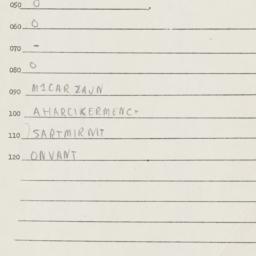 050 O
060 O
070 -
080 O
090 MICARZAUN
100 AHARCIKERMENC
110 SARTMIRAVIT
120 ONVANT